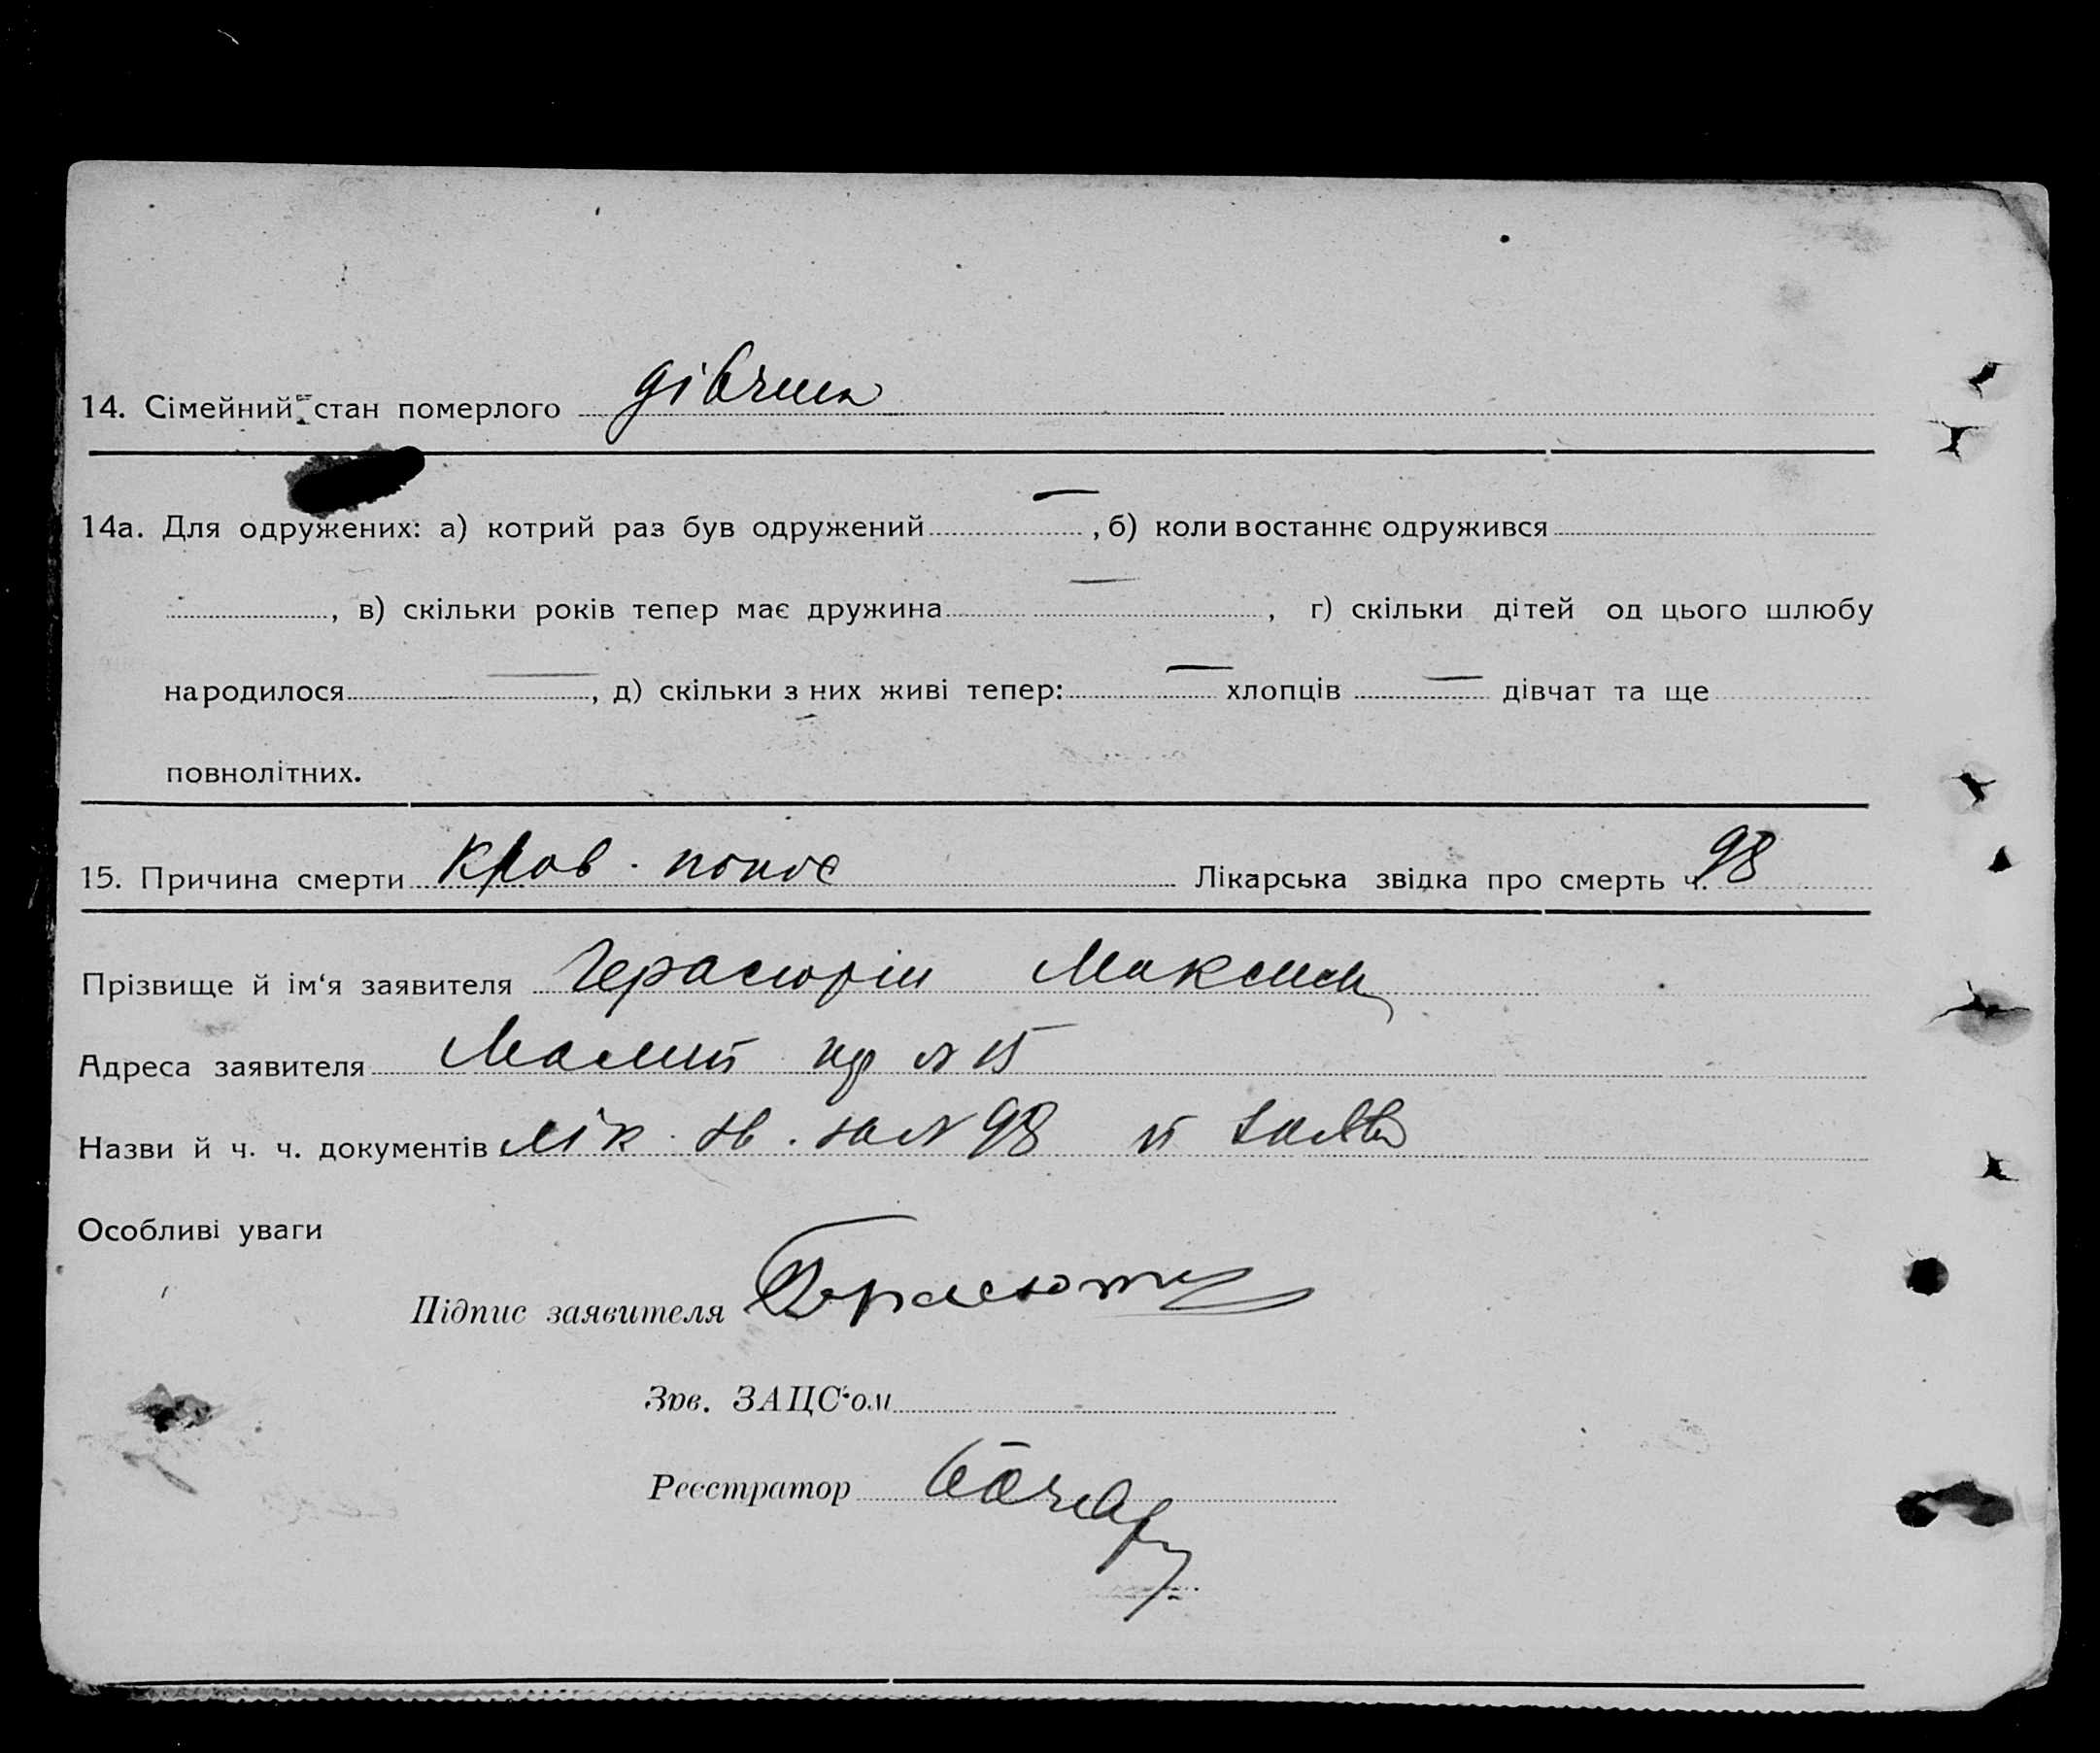 14. Сімейний стан померлого дівчина
14а. Для одружених: а) котрий раз був одружений — , б) коли востаннє одружився
, в) скільки років тепер має дружина — , г) скільки дітей од цього шлюбу
народилося — , д) скільки з них живі тепер: — хлопців — дівчат та ще
повнолітних.
15. Причина смерти Кров. понос Лікарська звідка про смерть ч. 98
Прізвище й ім‘я заявителя Максим
Адреса заявителя № 15
Назви й ч. ч. документів лік. зв. за № 98 й заява
Особливі уваги
Підпис заявителя
Зав. ЗАЦС‘ом
Реєстратор